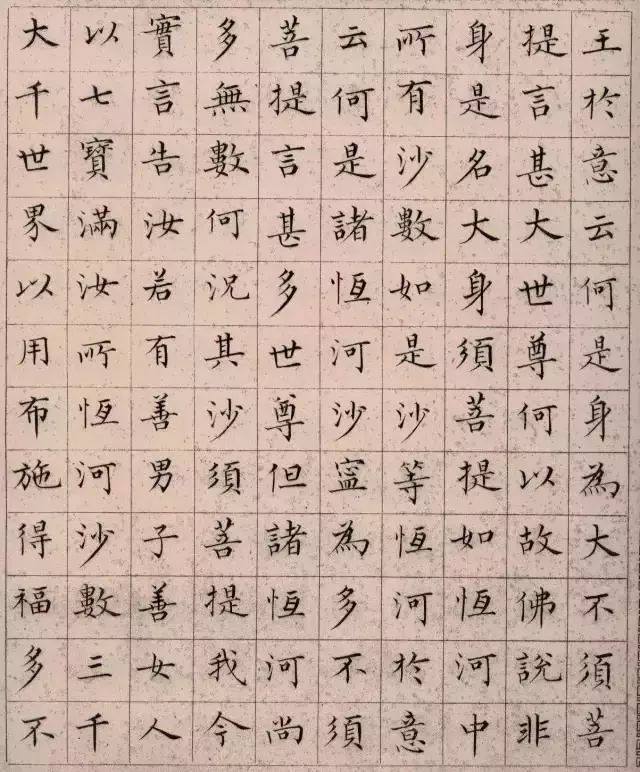 王於意云何是身為大不須菩
提言甚大世尊何以故佛說非
身是名大身須菩提如恆河中
所有沙數如是沙等恆河於意
云何是諸恆河沙寧為多不須
菩提言甚多世尊但諸恆河尚
多無數何況其沙須菩提我今
實言告汝若有善男子善女人
以七寶滿汝所恆河沙數三千
大千世界以用布施得福多不